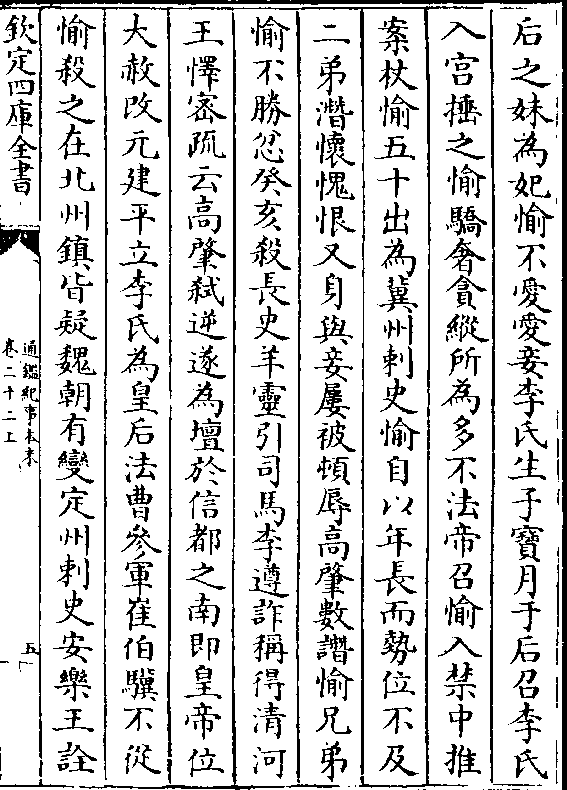 后之妹為妃愉不愛愛妾李氏生子寶月于后召李氏
入宫捶之愉驕奢貪縱所為多不法帝召愉入禁中推
案杖愉五十出為冀州刺史愉自以年長而勢位不及
二弟潛懷愧恨又身與妾屢被頓辱高肇數譖愉兄弟
愉不勝忿癸亥殺長史羊靈引司馬李遵詐稱得清河
王懌密疏云高肇弑逆遂為壇於信都之南即皇帝位
大赦改元建平立李氏為皇后法曹參軍崔伯驥不從
愉殺之在北州鎮皆疑魏朝有變定州刺史安樂王詮
欽定四庫全書
通鑑紀事本末
卷二十二上
五